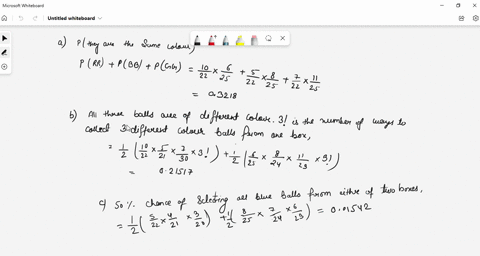 Microsoft Whiteboard
Untitled whiteboard
a) P(they are the same colour)
P(RR) + P(BB) + P(GG) = 10/22 × 6/25 + 5/22 × 8/25 + 7/22 × 11/25
= 0.3218
b) All three balls are of different colour. 3! is the number of ways to
collect 3 different colour balls from one box,
= 1/2 (10/22 × 5/21 × 7/20 × 3!) + 1/2 (6/25 × 8/24 × 11/23 × 3!)
= 0.21517
c) 50% chance of selecting all blue balls from either of two boxes,
= 1/2 (5/22 × 4/21 × 3/20) + 1/2 (8/25 × 7/24 × 6/23) = 0.01542